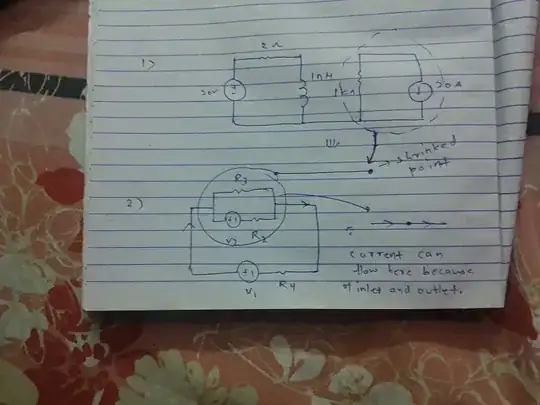 1>
2Ω
20V
1mH
1kΩ
20A
shrinked
point
2)
R3
V2
R2
V1
R4
current can
flow here because
of inlet and outlet.